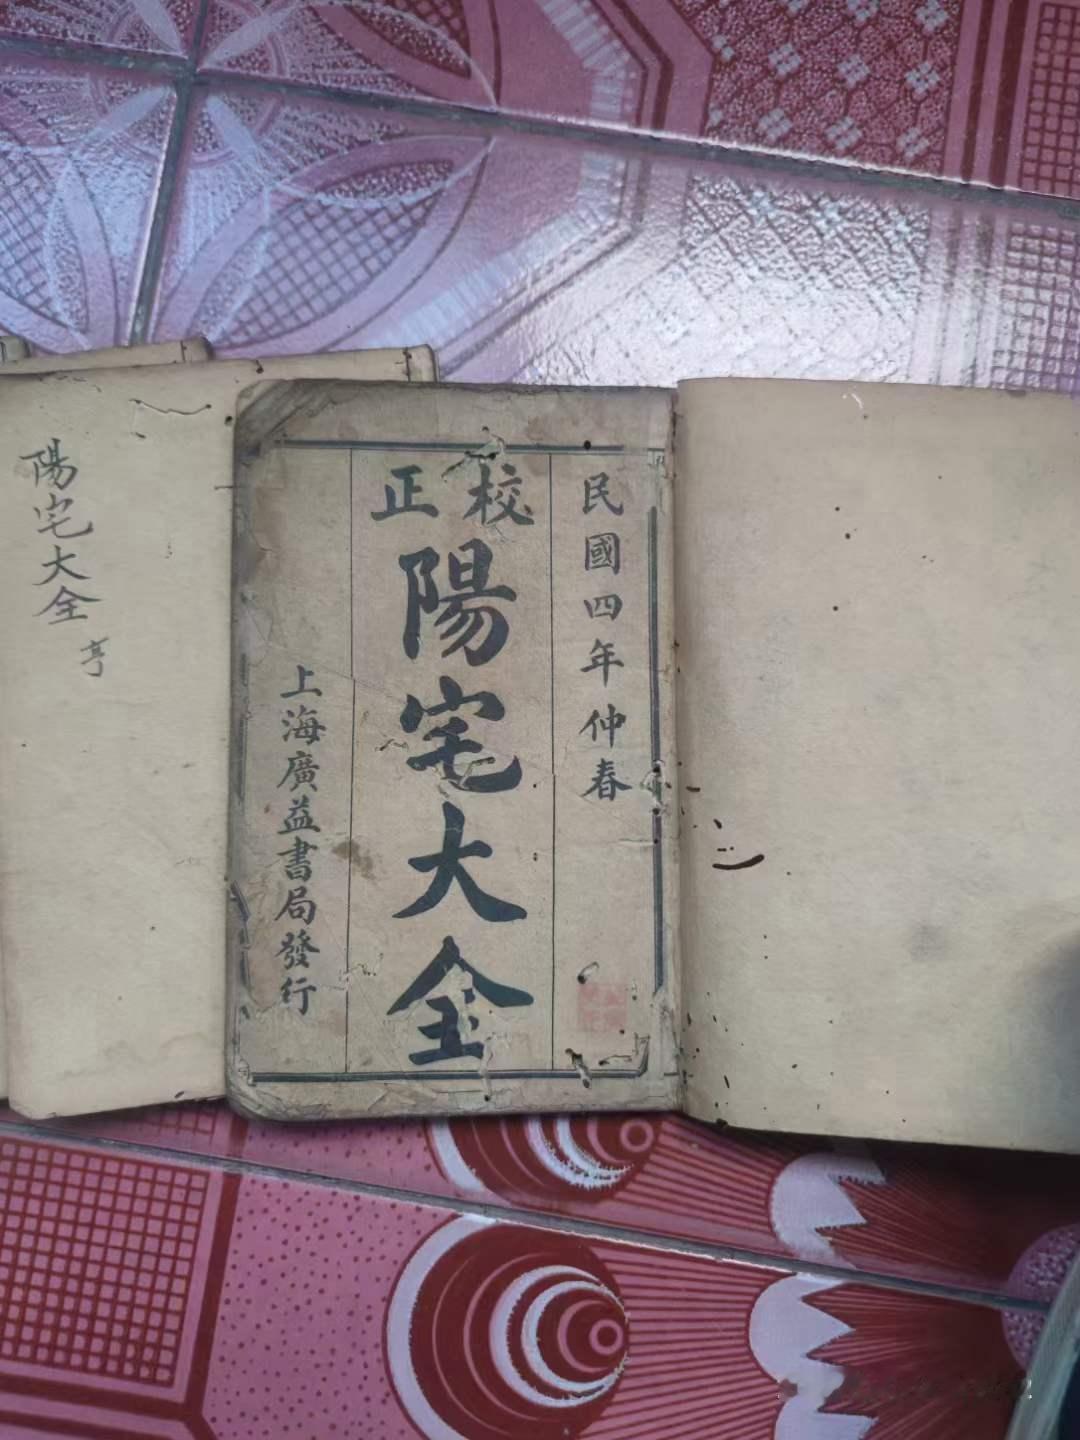 民國四年仲春
校正
陽宅大全
上海廣益書局發行
陽宅大全
亨